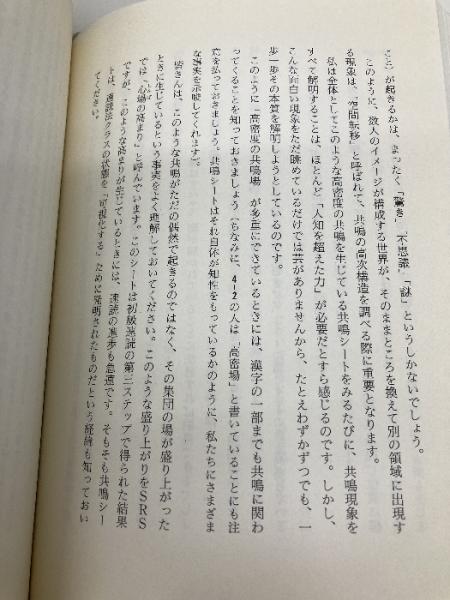 こと）が起きるかは、まったく「驚き」「不思議」「謎」というしかないでしょう。
このように、数人のイメージが構成する世界が、そのままところを換えて別の領域に出現す
る現象は、「空間転移」と呼ばれて、共鳴の高次構造を調べる際に重要となります。
私は全体としてこのような高密度の共鳴を生じている共鳴シートをみるたびに、共鳴現象を
すべて解明することは、ほとんど「人知を超えた力」が必要だとすら感じるのです。しかし、
こんな面白い現象をただ眺めているだけでは芸がありませんから、たとえわずかずつでも、一
歩一歩その本質を解明しようとしているのです。
このように「高密度の共鳴場」が多重にできているときには、漢字の一部までも共鳴に関わ
ってくることを知っておきましょう（ちなみに、4-2の人は「高密場」と書いていることにも注
意を払っておきましょう。共鳴シートはそれ自体が知性をもっているかのように、私たちにさまざま
な事実を示唆してくれます）。
皆さんは、このような共鳴がただの偶然で起きるのではなく、その集団の場が盛り上がった
ときに生じているという事実をよく理解しておいてください。このような盛り上がりをSRS
では「心場の高まり」と呼んでいます。このシートは初級速読の第三ステップで得られた結果
ですが、このような高まりが生じているときには、速読の進歩も急速です。そもそも共鳴シー
トは、速読法クラスの状態を「可視化する」ために発明されたものだという経緯も知っておい
てください。